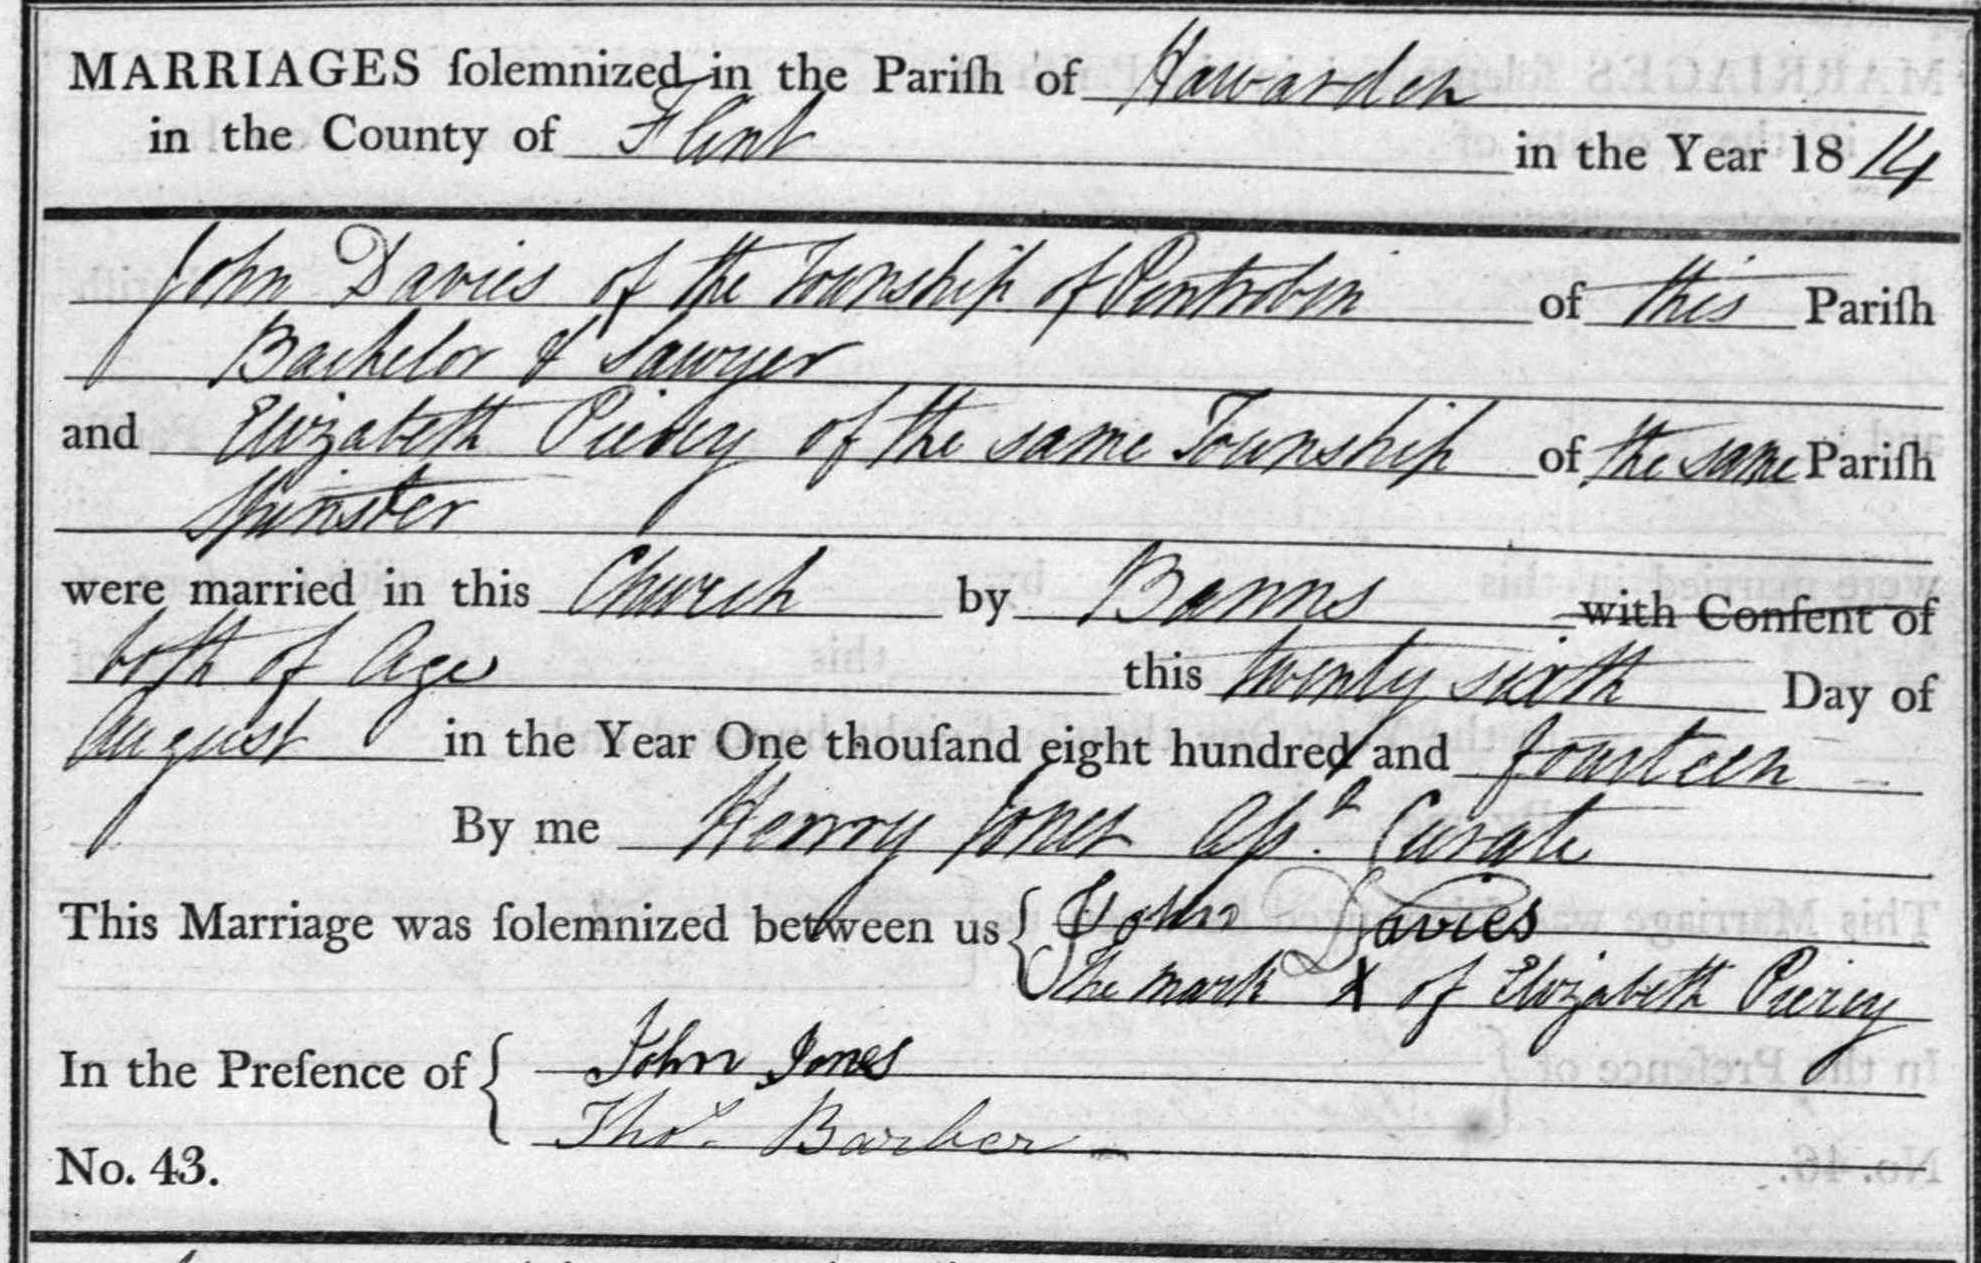 MARRIAGES ſolemnized in the Pariſh of Hawarden
in the County of Flint in the Year 18 14
John Davies of the Township of Pentrobin of this Pariſh
Bachelor & Sawyer
and Elizabeth Piercy of the same Township of the same Pariſh
Spinster
were married in this Church by Banns with Conſent of
both of Age this twenty sixth Day of
August in the Year One thouſand eight hundred and fourteen
By me Henry Jones Asst. Curate
This Marriage was ſolemnized between us { John Davies
The mark X of Elizabeth Piercy
In the Preſence of { John Jones
Thos. Barber
No. 43.